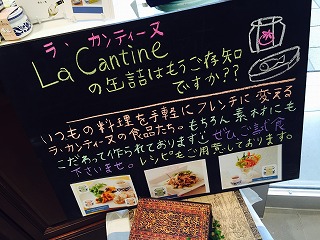 ラ・カンティーヌ
La Cantine
の缶詰はもうご存知
ですか??
いつもの料理を手軽にフレンチに変える
ラ・カンティーヌの食品たち。もちろん素材にも
こだわって作られております! ぜひご試食
下さいませ。レシピもご用意しております。